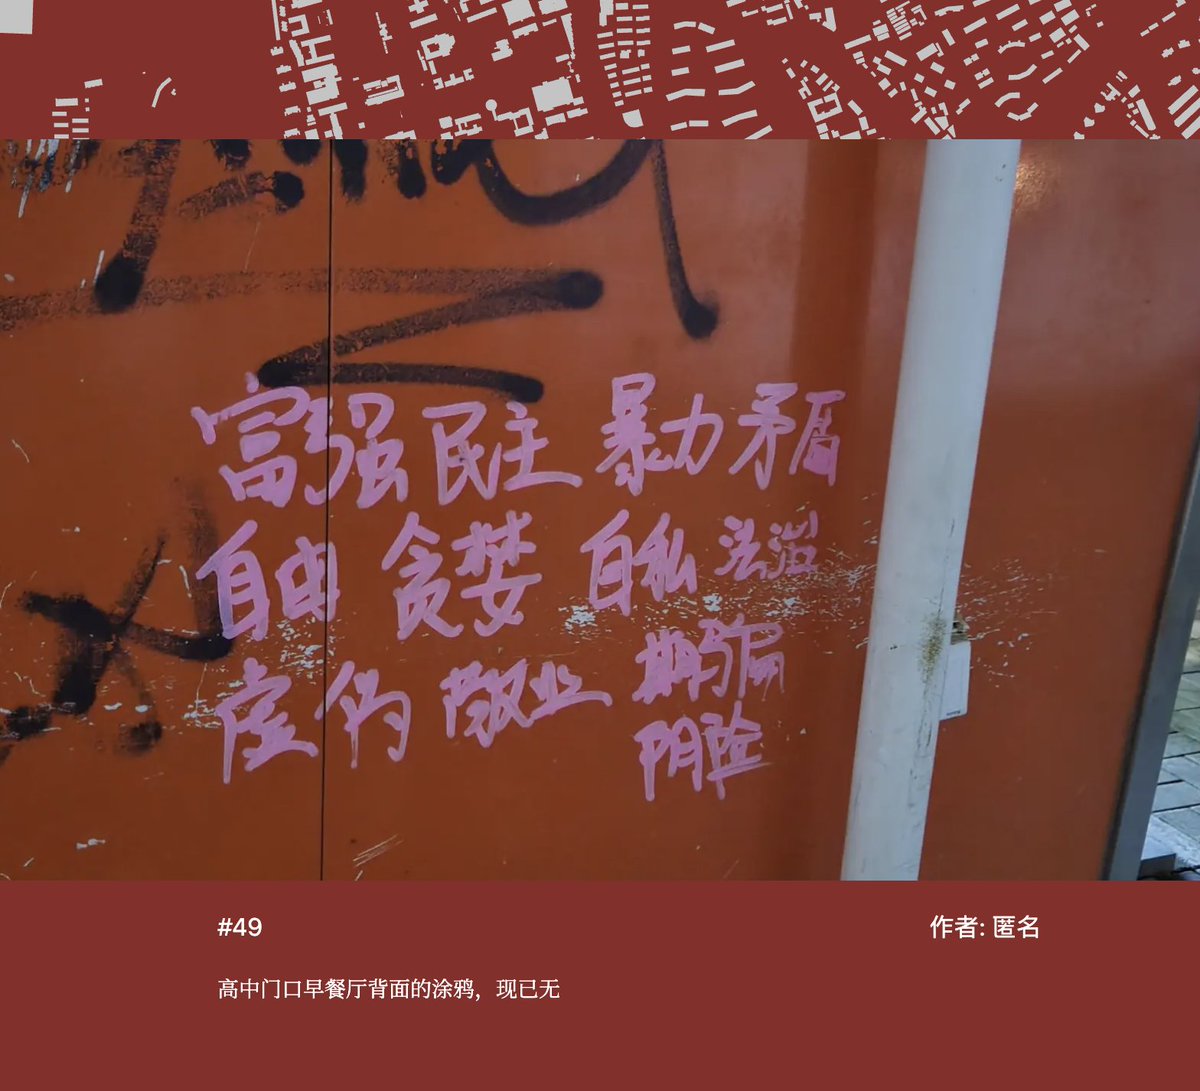 富强民主 暴力矛盾
自由 贪婪 自私 法治
虚伪 敬业 欺骗
阴险
#49
作者: 匿名
高中门口早餐厅背面的涂鸦，现已无